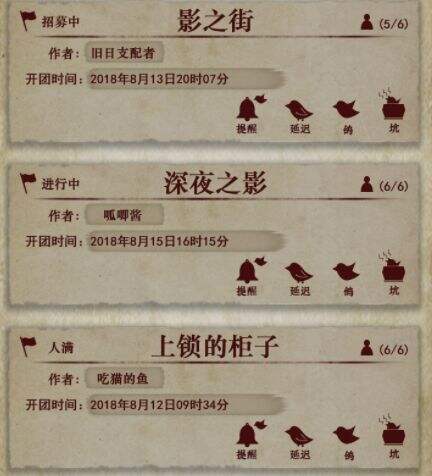 招募中 影之街 (5/6)
作者： 旧日支配者
开团时间： 2018年8月13日20时07分
提醒 延迟 鸽 坑
进行中 深夜之影 (6/6)
作者： 呱唧酱
开团时间： 2018年8月15日16时15分
提醒 延迟 鸽 坑
人满 上锁的柜子 (6/6)
作者： 吃猫的鱼
开团时间： 2018年8月12日09时34分
提醒 延迟 鸽 坑